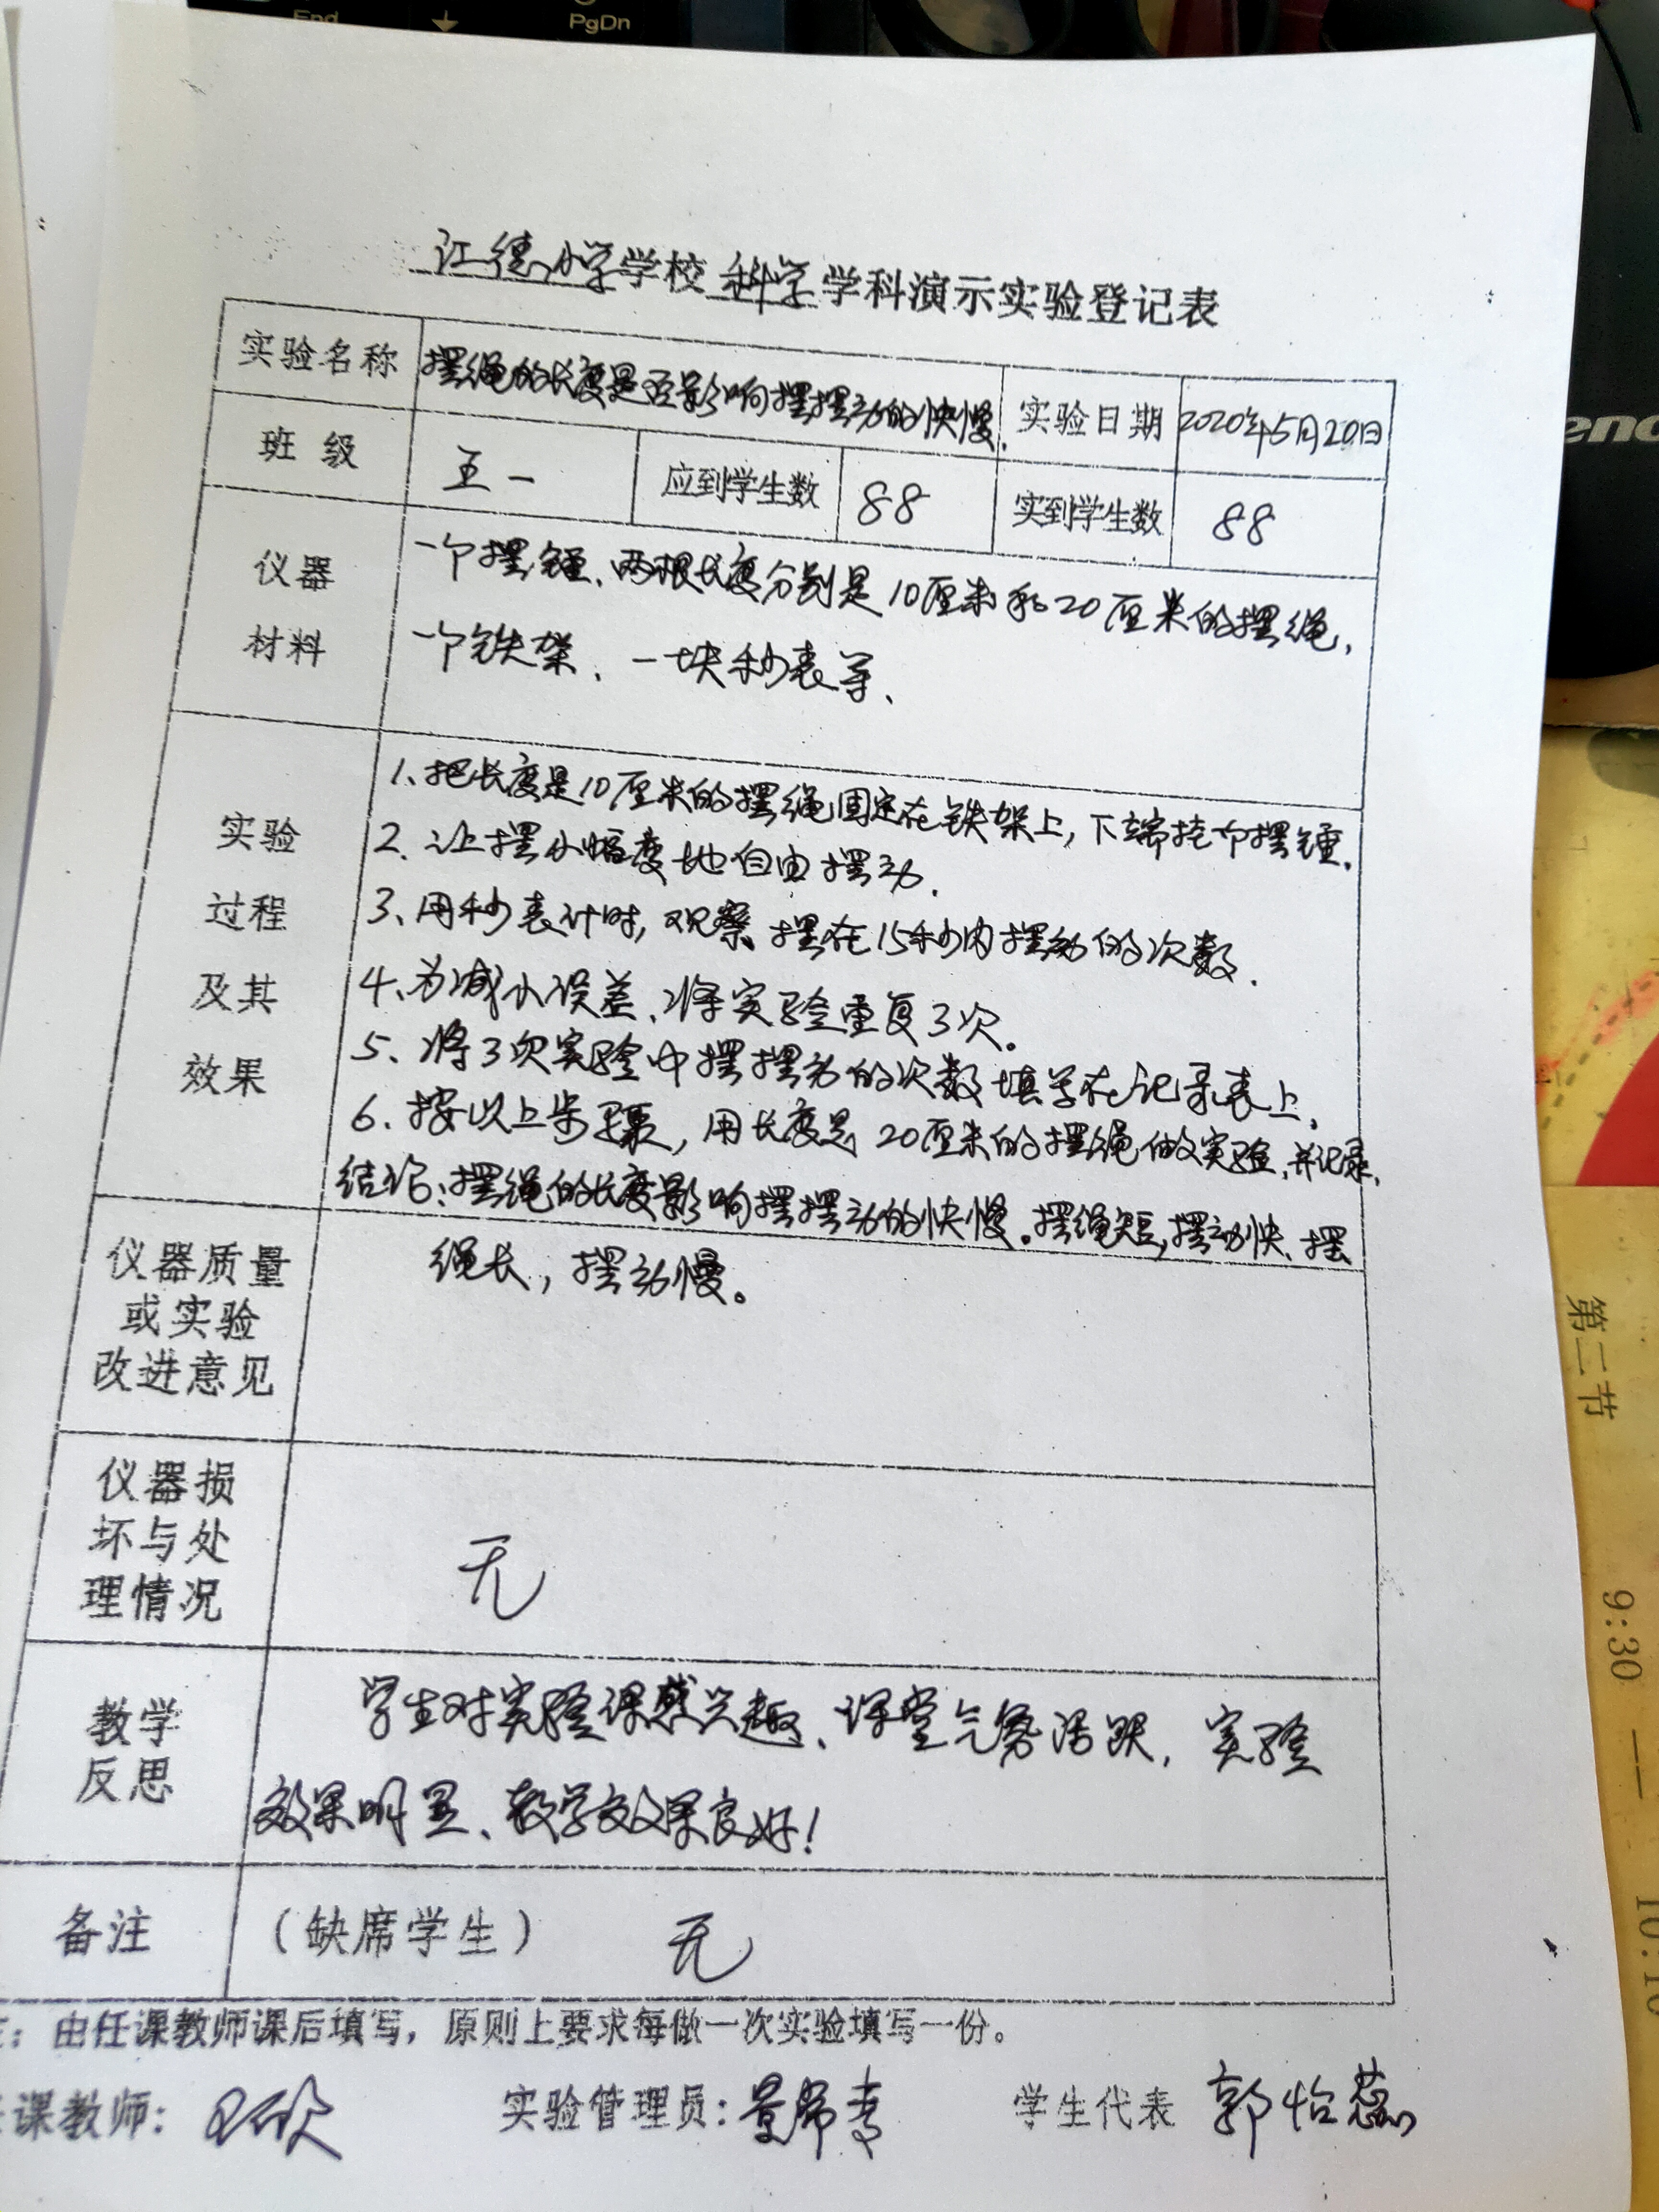 End
PgDn
江德小学学校科学学科演示实验登记表
实验名称
摆绳的长度是否影响摆摆动的快慢.
实验日期
2020年5月20日
班 级
五一
应到学生数
88
实到学生数
88
仪器
材料
一个摆锺、两根长度分别是10厘米和20厘米的摆绳,
一个铁架、一块秒表等、
实验
过程
及其
效果
1、把长度是10厘米的摆绳固定在铁架上,下端挂个摆锺.
2、让摆小幅度地自由摆动.
3、用秒表计时,观察摆在15秒内摆动的次数.
4、为减小误差、将实验重复3次。
5、将3次实验中摆摆动的次数填写在记录表上,
6、按以上步骤,用长度是20厘米的摆绳做实验,并记录,
结论:摆绳的长度影响摆摆动的快慢。摆绳短,摆动快、摆
绳长,摆动慢。
仪器质量
或实验
改进意见
仪器损
坏与处
理情况
无
教学
反思
学生对实验课感兴趣、课堂气氛活跃,实验
效果明显、教学效果良好!
备注
(缺席学生) 无
:由任课教师课后填写,原则上要求每做一次实验填写一份。
课教师:
实验管理员:
学生代表 郭怡蕊
第二节
9:30
10:10